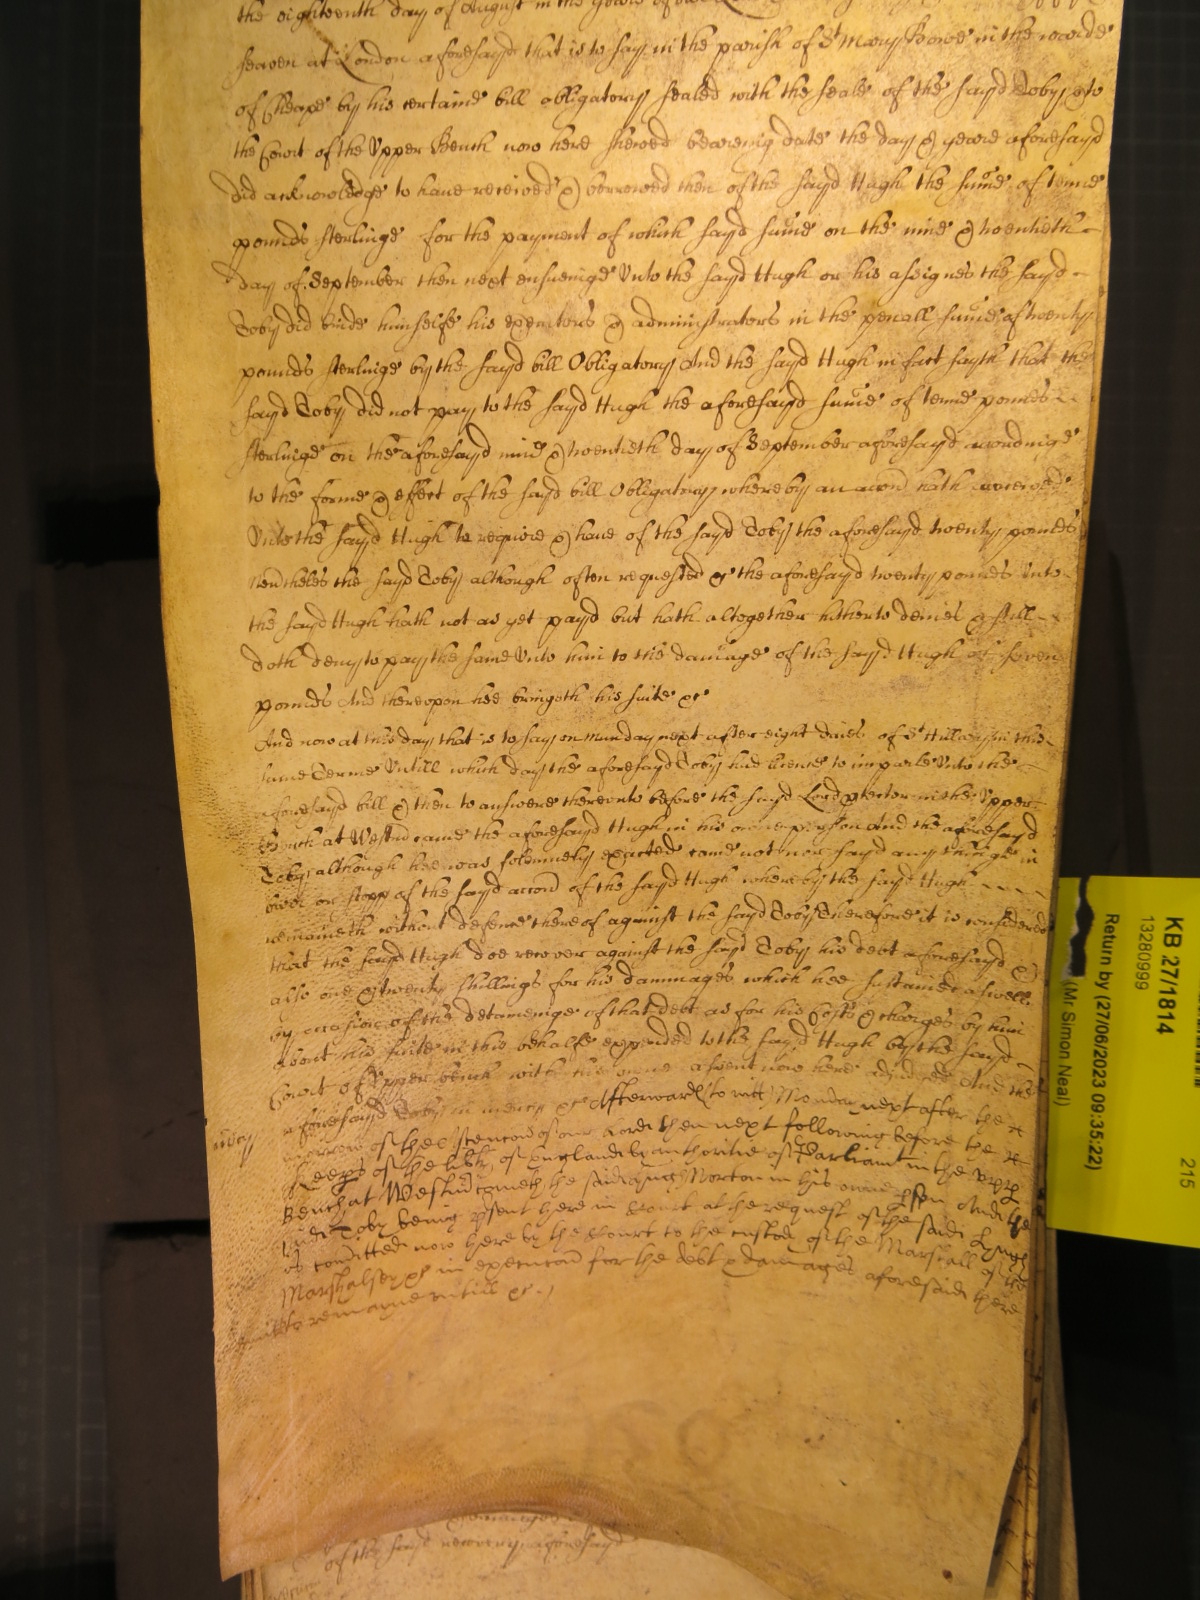 the eighteenth day of August in the yeare of our
seaven at London aforesayd that is to say in the parish of St Mary Bowe in the warde
of Cheape by his certaine bill obligatory sealed with the seale of the sayd Toby & to
the Court of the Upper Bench now here shewed beareing date the day & yeare aforesayd
did acknowledge to have received & borrowed then of the sayd Hugh the sume of tenne
pounds sterlinge for the payment of which sayd sume on the nine & twentieth
day of September then next ensueinge Unto the sayd Hugh or his assignes the sayd
Toby did binde himselfe his executors & administrators in the penall sume of twenty
pounds sterlinge by the sayd bill Obligatory And the sayd Hugh in fact sayth that the
sayd Toby did not pay to the sayd Hugh the aforesayd sume of tenne pounds
sterlinge on the aforesayd nine & twentieth day of September aforesayd accordinge
to the forme & effect of the sayd bill Obligatory whereby an accon hath accrewed
Unto the sayd Hugh to require & have of the sayd Toby the aforesayd twenty pounds
Neverthelesse the sayd Toby although often requested &c the aforesayd twenty pounds Unto
the sayd Hugh hath not as yet payd but hath altogether hitherto denied & still
doth deny to pay the same Unto him to the damage of the sayd Hugh of seven
pounds And thereupon hee bringeth his suite &c
And now at this day that is to say on Munday next after eight daies of St Hillary in this
same Terme Untill which day the aforesayd Toby had license to imparle Unto the
aforesayd bill & then to answere thereunto before the sayd Lord protector in the Upper
Bench at Westm came the aforesayd Hugh in his owne person And the aforesayd
Toby although hee was solemnely exacted came not nor sayd any thinge in
barr or stopp of the sayd accon of the sayd Hugh whereby the sayd Hugh
remaineth without defence thereof against the sayd Toby Therefore it is considered
that the sayd Hugh doe recover against the sayd Toby his debt aforesayd &
also one & twenty shillings for his dammages which hee sustained aswell
by occasion of the detaineinge of that debt as for his Costs & charges by him
about his suite in this behalfe expended to the sayd Hugh by the sayd
Court of Upper bench with his owne assent now here adjudged And the
aforesayd Toby in mercy &c Afterwards (to witt) Monday next after the
mercy
morrow of the Ascencon of our Lord then next following before the
Keeps of the libty of England by authoritie of Parliamt in the Upp
Bench at Westm cometh the said Hugh Morton in his owne pson And the
said Toby being psent here in Court at the request of the said Hugh
is comitted now here by the Court to the custody of the Marshall of the
Marshalsey &c in execucon for the debt & damages aforesaid there
to remaine untill &c
of the sayd recovery aforesayd
KB 27/1814
13280999
Return by (27/06/2023 09:35:22)
(Mr Simon Neal)
215